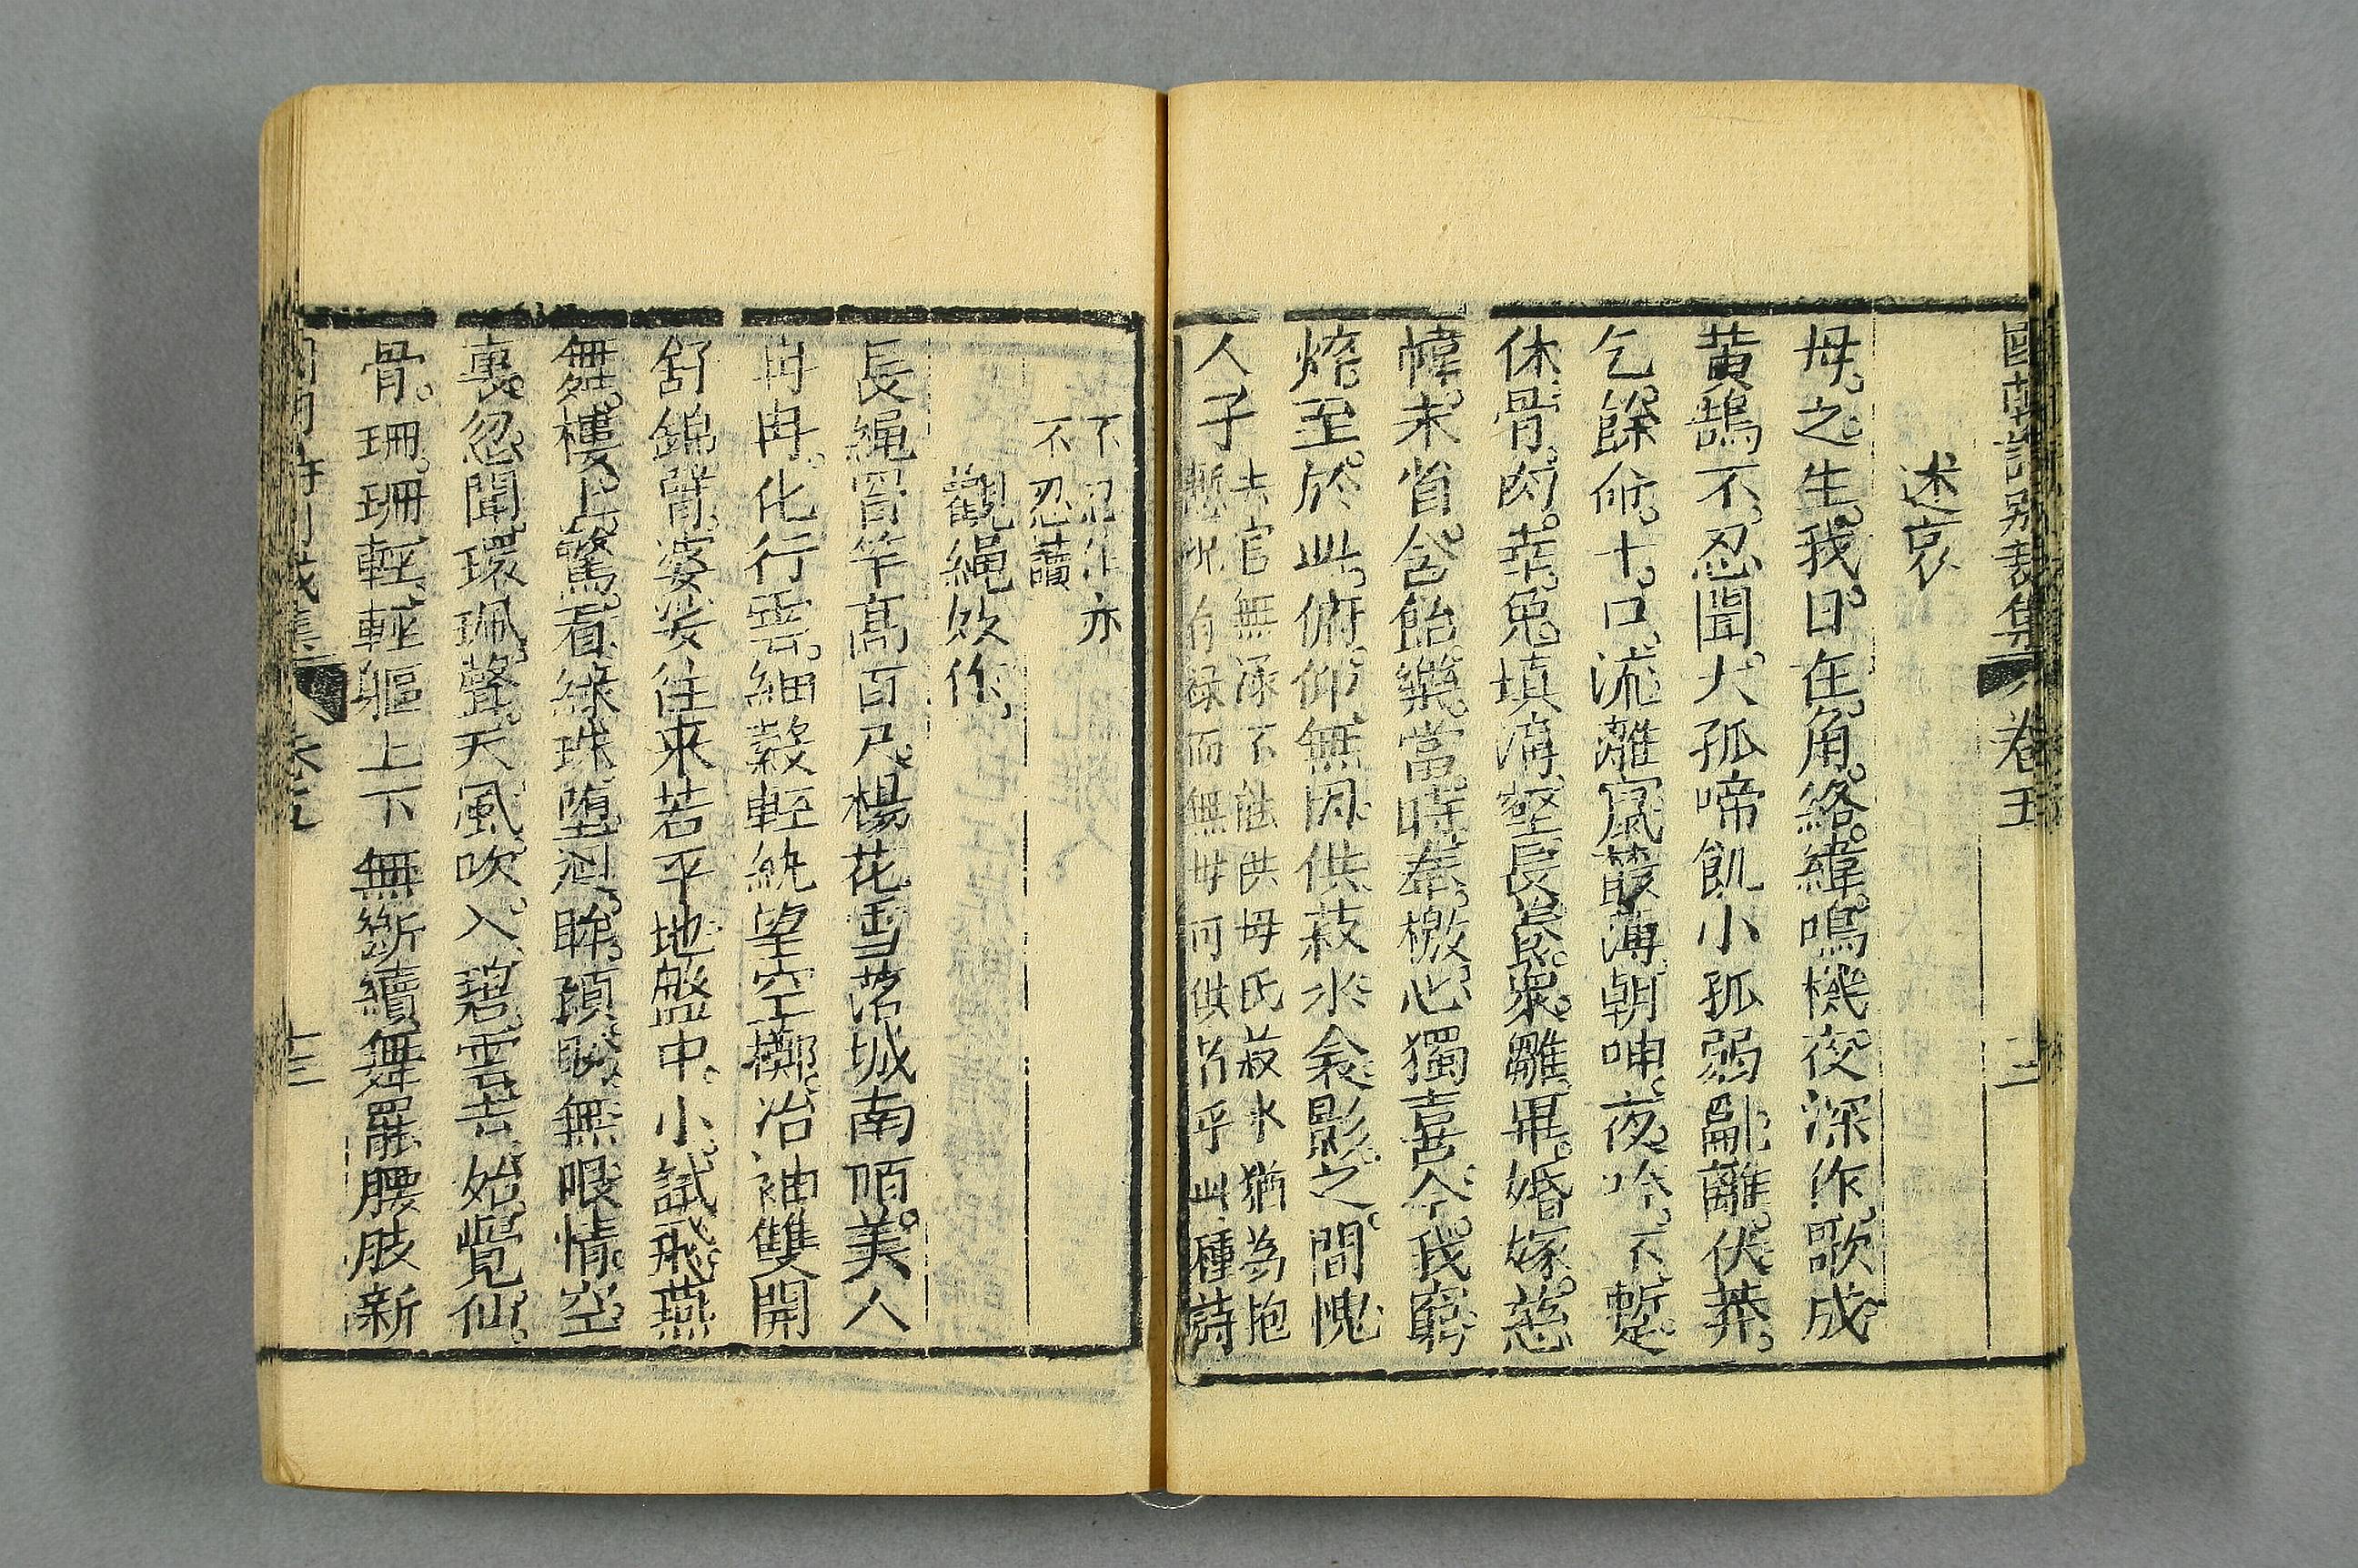 國朝詩別裁集 卷五
述哀
母之生我日在角絡緯鳴機夜深作歌成
黃鵠不忍聞大孤啼飢小孤弱亂離伏莽
乞餘命十口流離風籜薄朝呻夜吟不蹔
休骨肉幸免填溝壑長養眾雛畢婚嫁慈
幃未省含飴樂當時奉檄心獨喜今我窮
愁至於此俯仰無因供菽水衾影之間愧
人子
去官無祿不能供母氏菽水猶為抱
慙况有祿而無母可供者乎此種詩
不忍作亦
不忍讀
觀繩妓作
長繩罥竿高百尺楊花雪落城南陌美人
冉冉化行雲細縠輕紈望空擲冶袖雙開
舒錦臂婆娑往來若平地盤中小試飛燕
舞樓上驚看綠珠墮迴眸頋盼無限情空
裏忽聞環珮聲天風吹入碧雲去始覺仙
骨珊珊輕輕軀上下無斷續舞罷腰肢新
卷五
十三